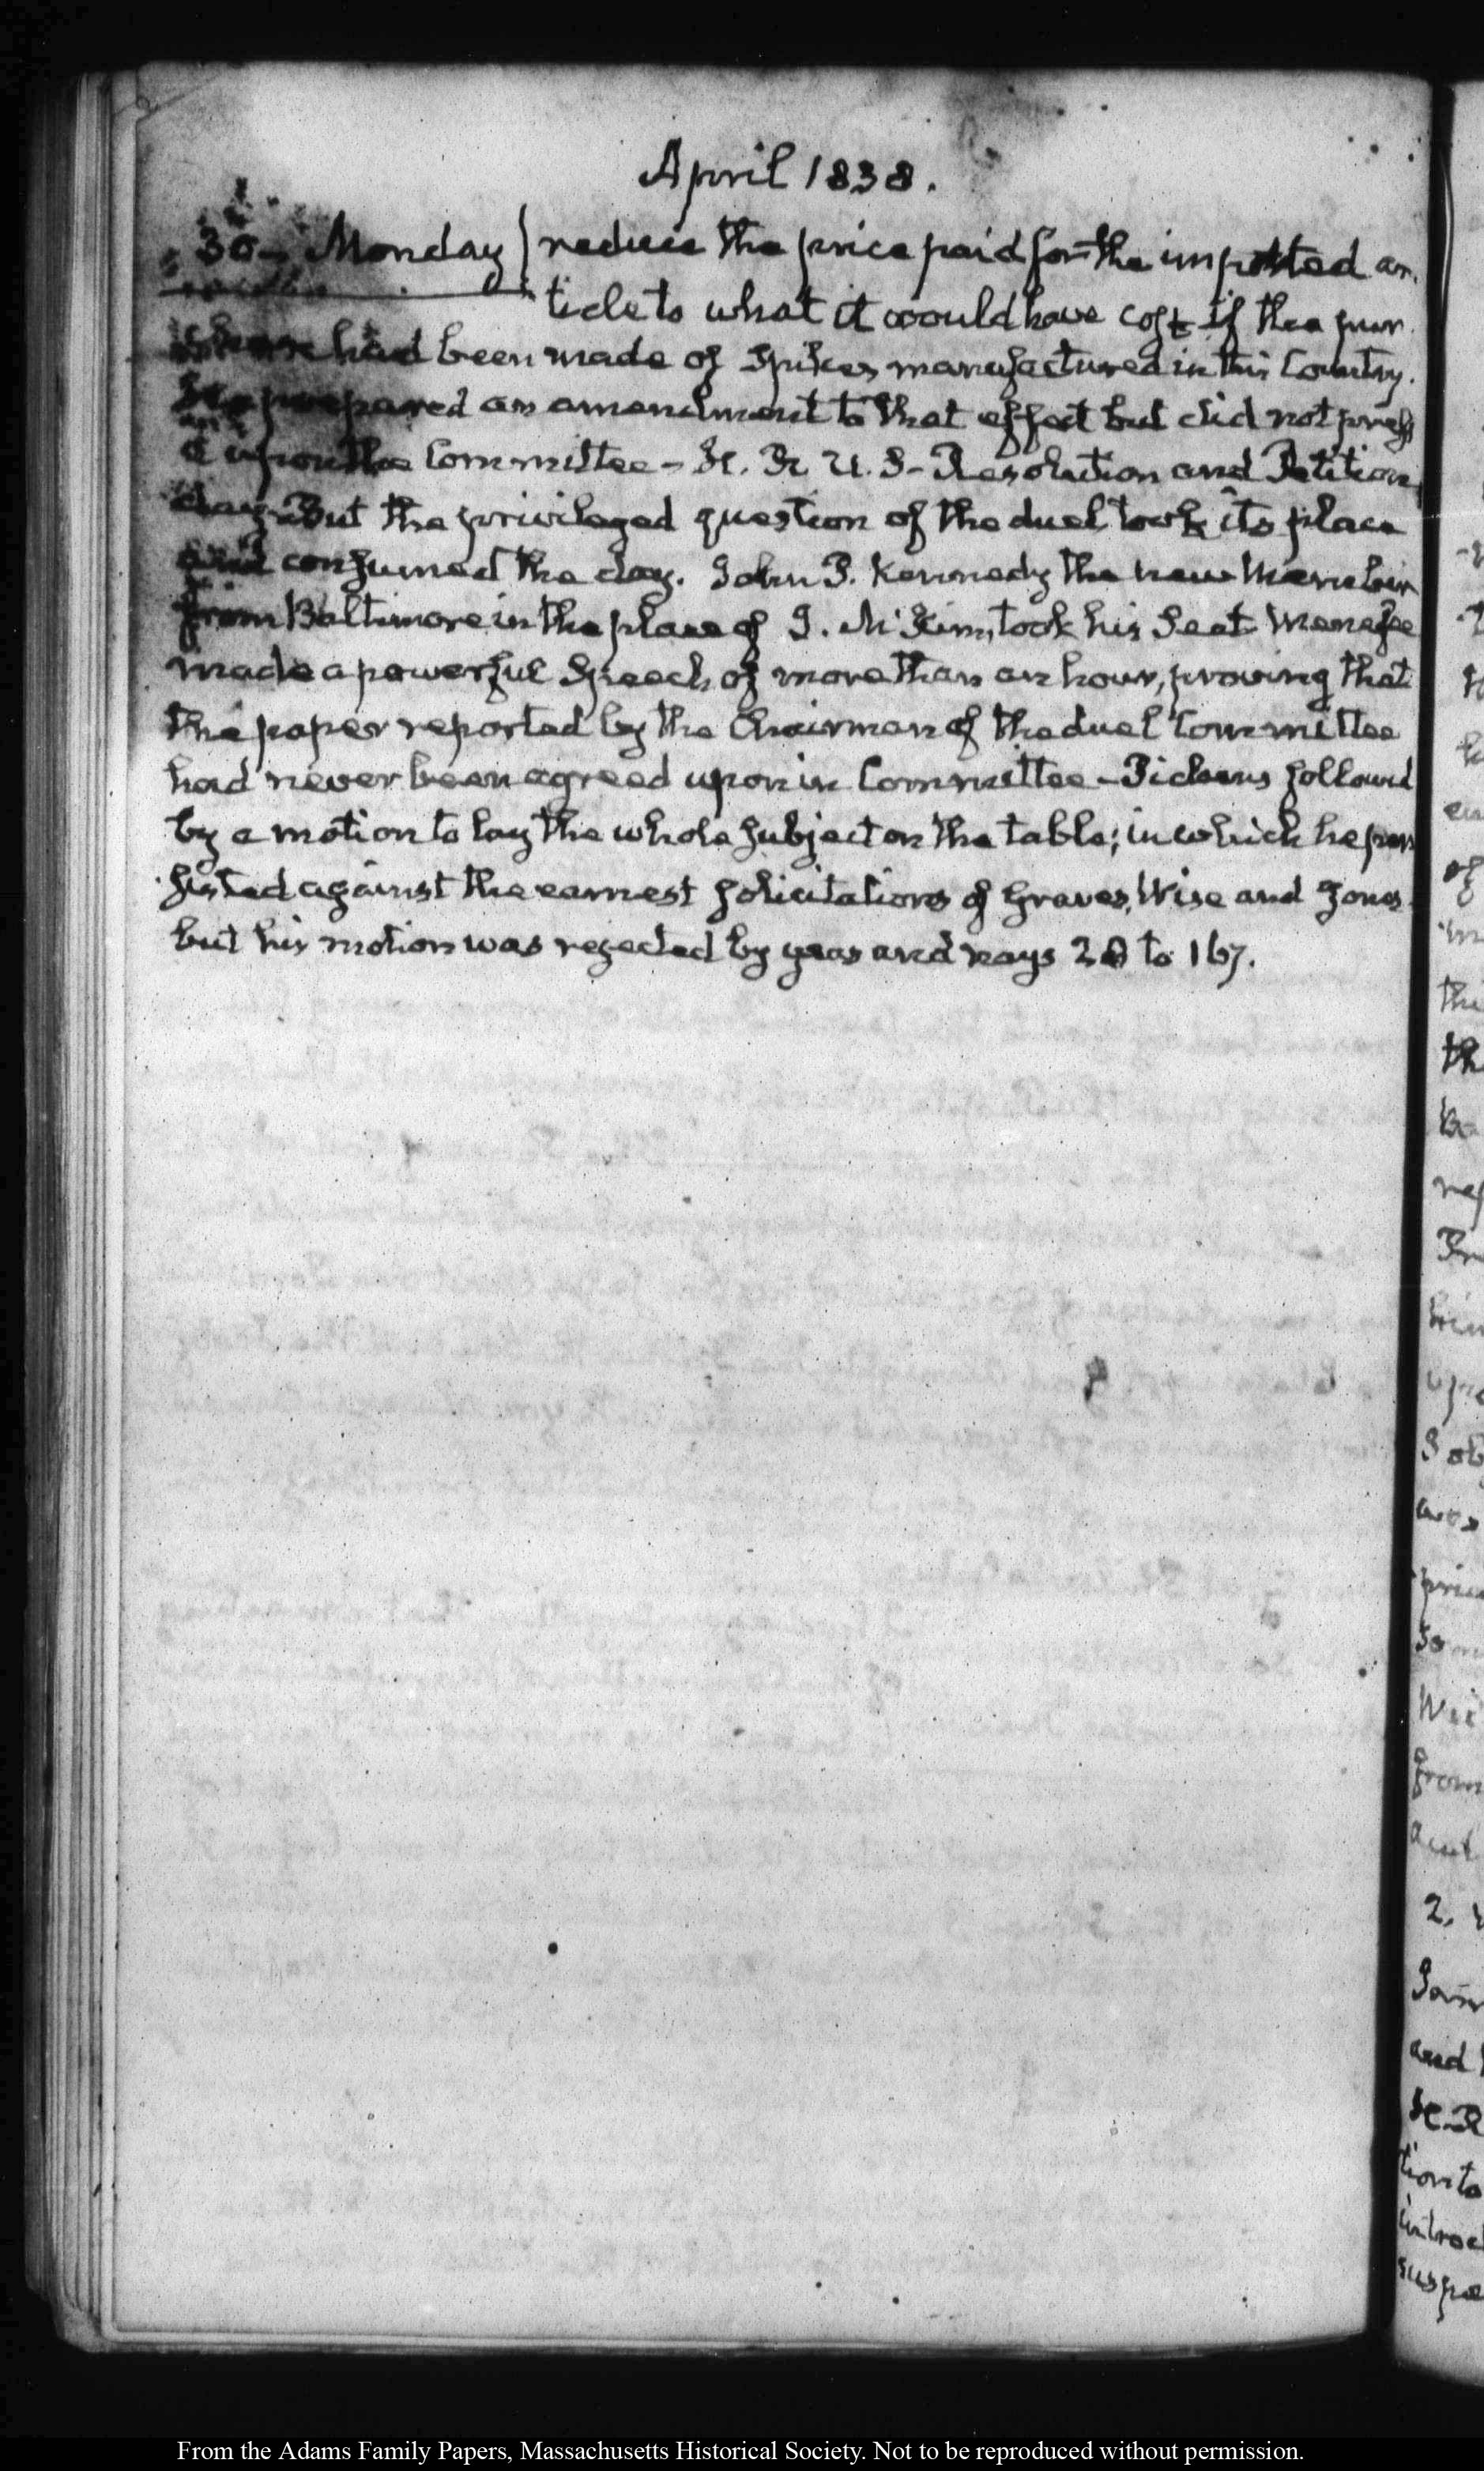 April 1838.
30. Monday reduce the price paid for the imported ar-
ticle to what it would have cost if the pur-
chase had been made of Spikes manufactured in this Country.
He prepared an amendment to that effect but did not press
it upon the Committee – H. R. U. S – Resolution and Petition
day. But the privileged question of the duel took its place
and consumed the day. John P. Kennedy the new Member
from Baltimore in the place of I. McKim, took his Seat. Menefee
made a powerful Speech of more than an hour, proving that
the paper reported by the Chairman of the duel Committee
had never been agreed upon in Committee – Pickens followed
by a motion to lay the whole subject on the table; in which he per-
sisted against the earnest solicitations of Graves, Wise and Jones
but his motion was rejected by yeas and nays to 167.
From the Adams Family Papers, Massachusetts Historical Society. Not to be reproduced without permission.